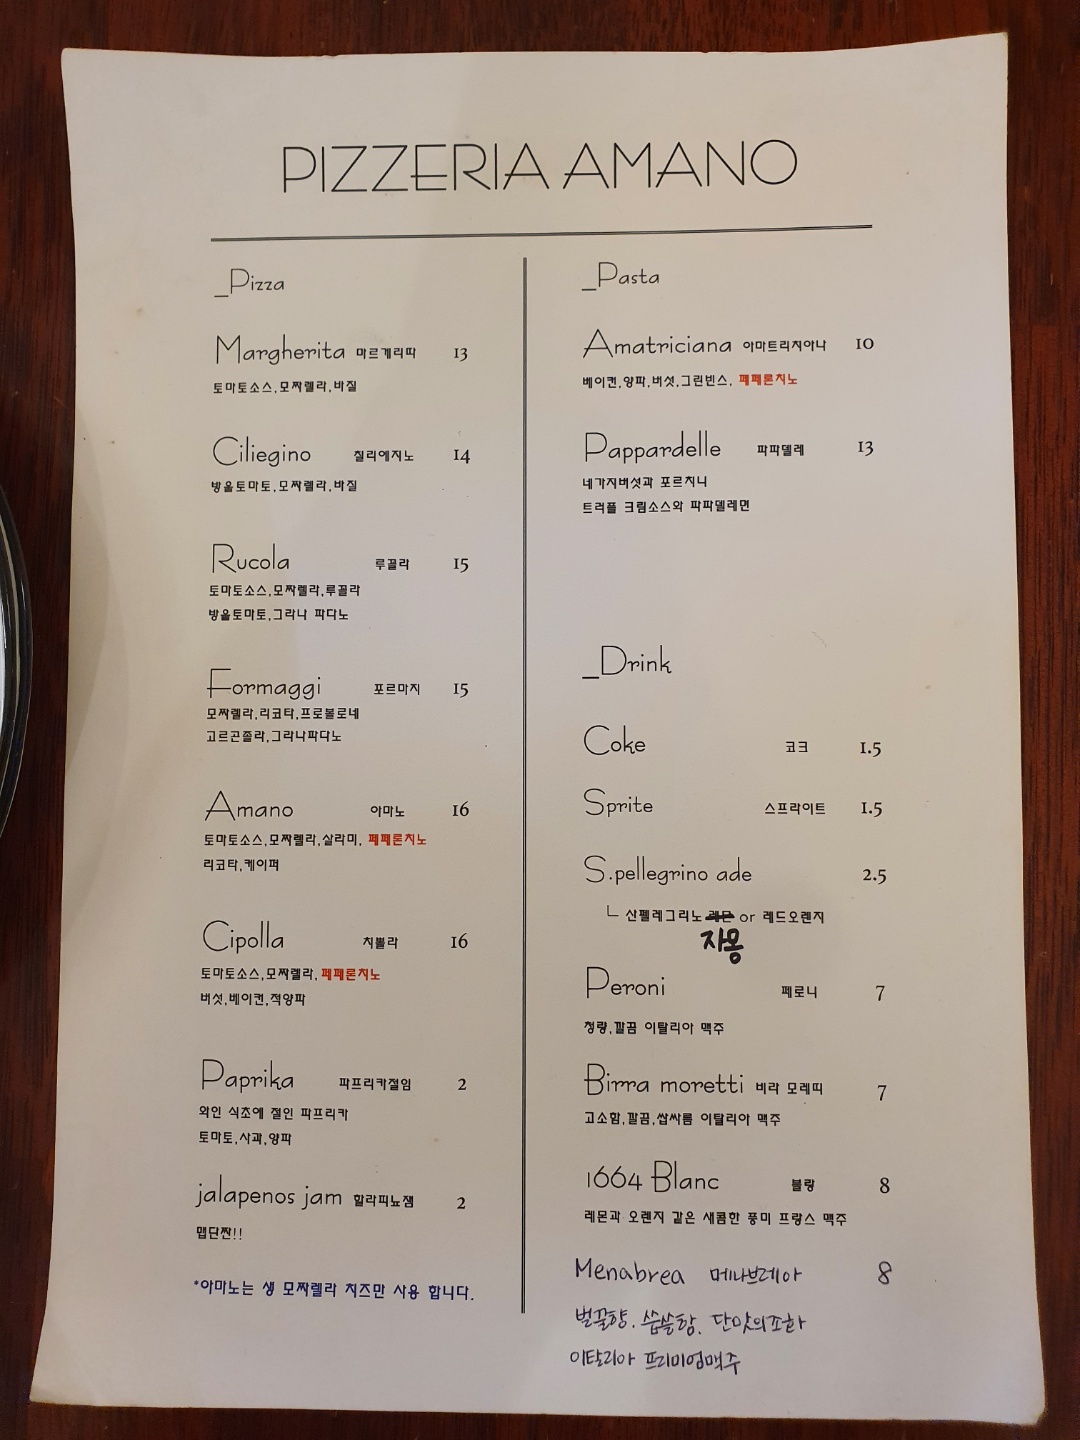 PIZZERIA AMANO
_Pizza
Margherita 마르게리따 13
토마토소스,모짜렐라,바질
Ciliegino 칠리에지노 14
방울토마토,모짜렐라,바질
Rucola 루꼴라 15
토마토소스,모짜렐라,루꼴라
방울토마토,그라나 파다노
Formaggi 포르마지 15
모짜렐라,리코타,프로볼로네
고르곤졸라,그라나파다노
Amano 아마노 16
토마토소스,모짜렐라,살라미, 페페론치노
리코타,케이퍼
Cipolla 치뽈라 16
토마토소스,모짜렐라,페페론치노
버섯,베이컨,적양파
Paprika 파프리카절임 2
와인 식초에 절인 파프리카
토마토,사과,양파
jalapenos jam 할라피뇨잼 2
맵단짠!!
*아마노는 생 모짜렐라 치즈만 사용 합니다.
_Pasta
Amatriciana 아마트리치아나 10
베이컨,양파,버섯,그린빈스, 페페론치노
Pappardelle 파파델레 13
네가지버섯과 포르치니
트러플 크림소스와 파파델레면
_Drink
Coke 코크 1.5
Sprite 스프라이트 1.5
S.pellegrino ade 2.5
└ 산펠레그리노 레몬 or 레드오렌지
자몽
Peroni 페로니 7
청량,깔끔 이탈리아 맥주
Birra moretti 비라 모레띠 7
고소함,깔끔,쌉싸름 이탈리아 맥주
1664 Blanc 블랑 8
레몬과 오렌지 같은 새콤한 풍미 프랑스 맥주
Menabrea 메나브레아 8
벌꿀향, 씁쓸함, 단맛의조화
이탈리아 프리미엄맥주